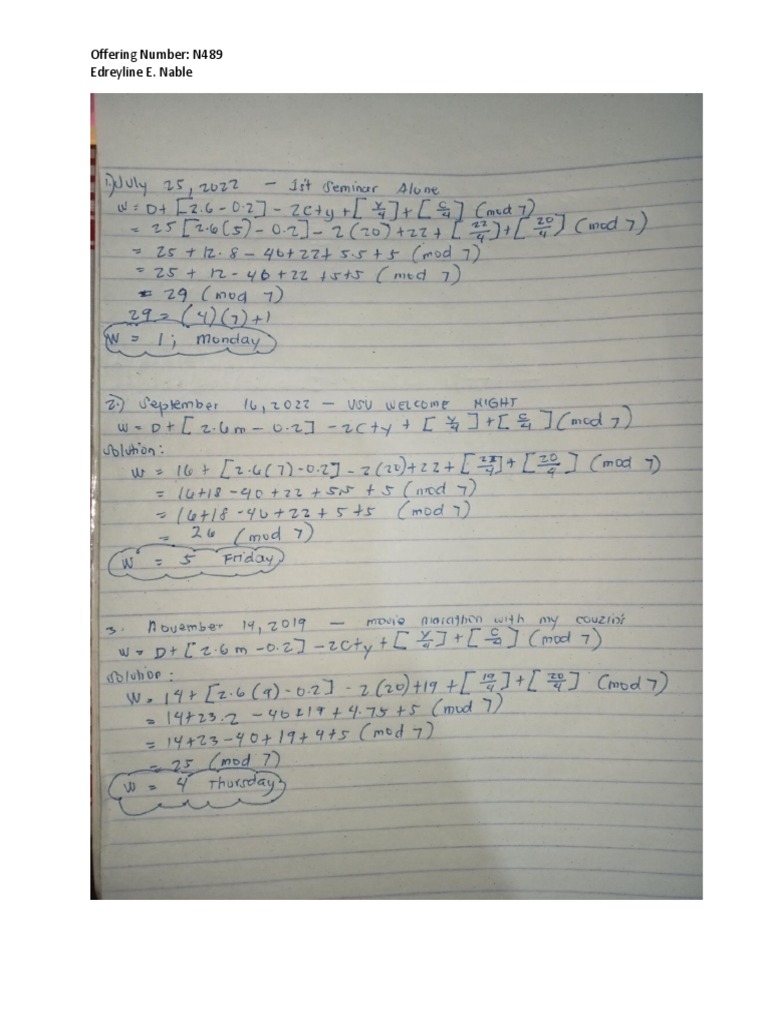 Offering Number: N489
Edreyline E. Nable
1.) July 25, 2022 - 1st Seminar Alone
W = D + [2.6 - 0.2] - 2C + y + [y/4] + [c/4] (mod 7)
= 25 [2.6(5) - 0.2] - 2(20) + 22 + [22/4] + [20/4] (mod 7)
= 25 + 12.8 - 40 + 22 + 5.5 + 5 (mod 7)
= 25 + 12 - 40 + 22 + 5 + 5 (mod 7)
= 29 (mod 7)
29 = (4)(7) + 1
W = 1; Monday
2.) September 16, 2022 - VSU WELCOME NIGHT
W = D + [2.6m - 0.2] - 2C + y + [y/4] + [c/4] (mod 7)
Solution:
W = 16 + [2.6(7) - 0.2] - 2(20) + 22 + [22/4] + [20/4] (mod 7)
= 16 + 18 - 40 + 22 + 5.5 + 5 (mod 7)
= 16 + 18 - 40 + 22 + 5 + 5 (mod 7)
= 26 (mod 7)
W = 5 Friday
3. November 14, 2019 - movie marathon with my couzins
W = D + [2.6m - 0.2] - 2C + y + [y/4] + [c/4] (mod 7)
Solution:
W = 14 + [2.6(9) - 0.2] - 2(20) + 19 + [19/4] + [20/4] (mod 7)
= 14 + 23.2 - 40 + 19 + 4.75 + 5 (mod 7)
= 14 + 23 - 40 + 19 + 4 + 5 (mod 7)
= 25 (mod 7)
W = 4 Thursday